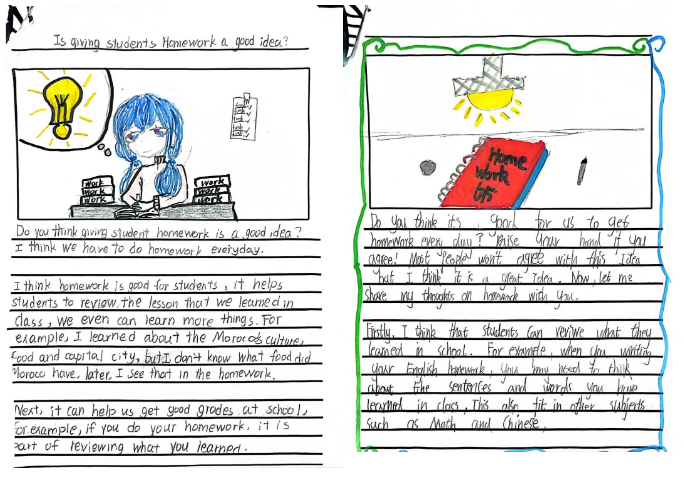 Is giving students Homework a good idea?
work work
work work
work work
Do you think giving student homework is a good idea?
I think we have to do homework everyday.
I think homework is good for students, it helps
students to review the lesson that we learned in
class, we even can learn more things. For
example, I learned about the Moroco's culture,
food and capital city, but I don't know what food did
Moroco have, later, I see that in the homework.
Next, it can help us get good grades at school,
for example, if you do your homework, it is
part of reviewing what you learned.
Home
work
Do you think it's good for us to get
homework every day? Raise your hand if you
agree! Most people won't agree with this Idea
but I think it is a great Idea. Now, let me
share my thoughts on homework with you.
Firstly, I think that students can reviwe what they
learned in school. For example, when you writing
your English homework, you may need to think
about the sentences and words you have
learned in class. This also fit in other subjects
such as Math and Chinese.